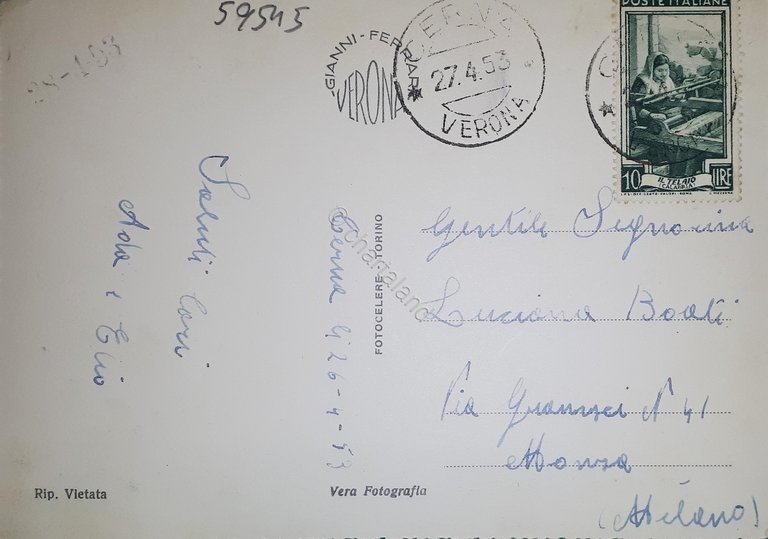 59545
POSTE ITALIANE
GIANNI-FERRARI
VERONA
27.4.53
VERONA
IL TELAIO
(CALABRIA)
10 LIRE
Saluti Cari
Ada e Elio
Cerna li 26-4-53
FOTOCELERE - TORINO
Gentile Signorina
Luciana Boati
Via Gramsci N 41
Monza
(Milano)
Rip. Vietata
Vera Fotografia